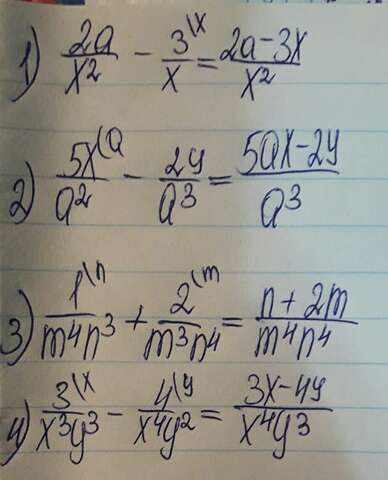 1) 2a/x² - 3\x/x = 2a-3x/x²
2) 5x\a/a² - 2y/a³ = 5ax-2y/a³
3) 1\n/m⁴n³ + 2\m/m³n⁴ = n+2m/m⁴n⁴
4) 3\x/x³y³ - 4\y/x⁴y² = 3x-4y/x⁴y³